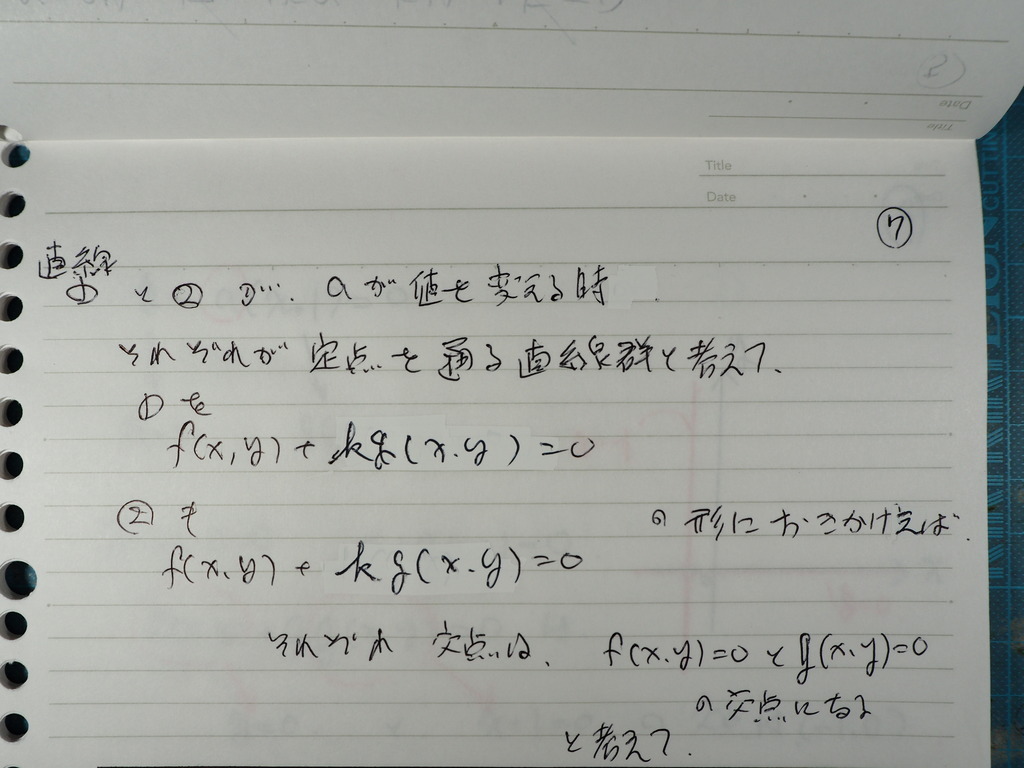 Title
Date
⑦
直線
①と②が、aが値を変える時
それぞれが定点を通る直線群と考えて、
①を
f(x,y)+kg(x.y)=0
②も
の形におきかげえば
f(x.y)+kg(x.y)=0
それぞれ 交点は、 f(x.y)=0とg(x.y)=0
の交点になる
と考えて、